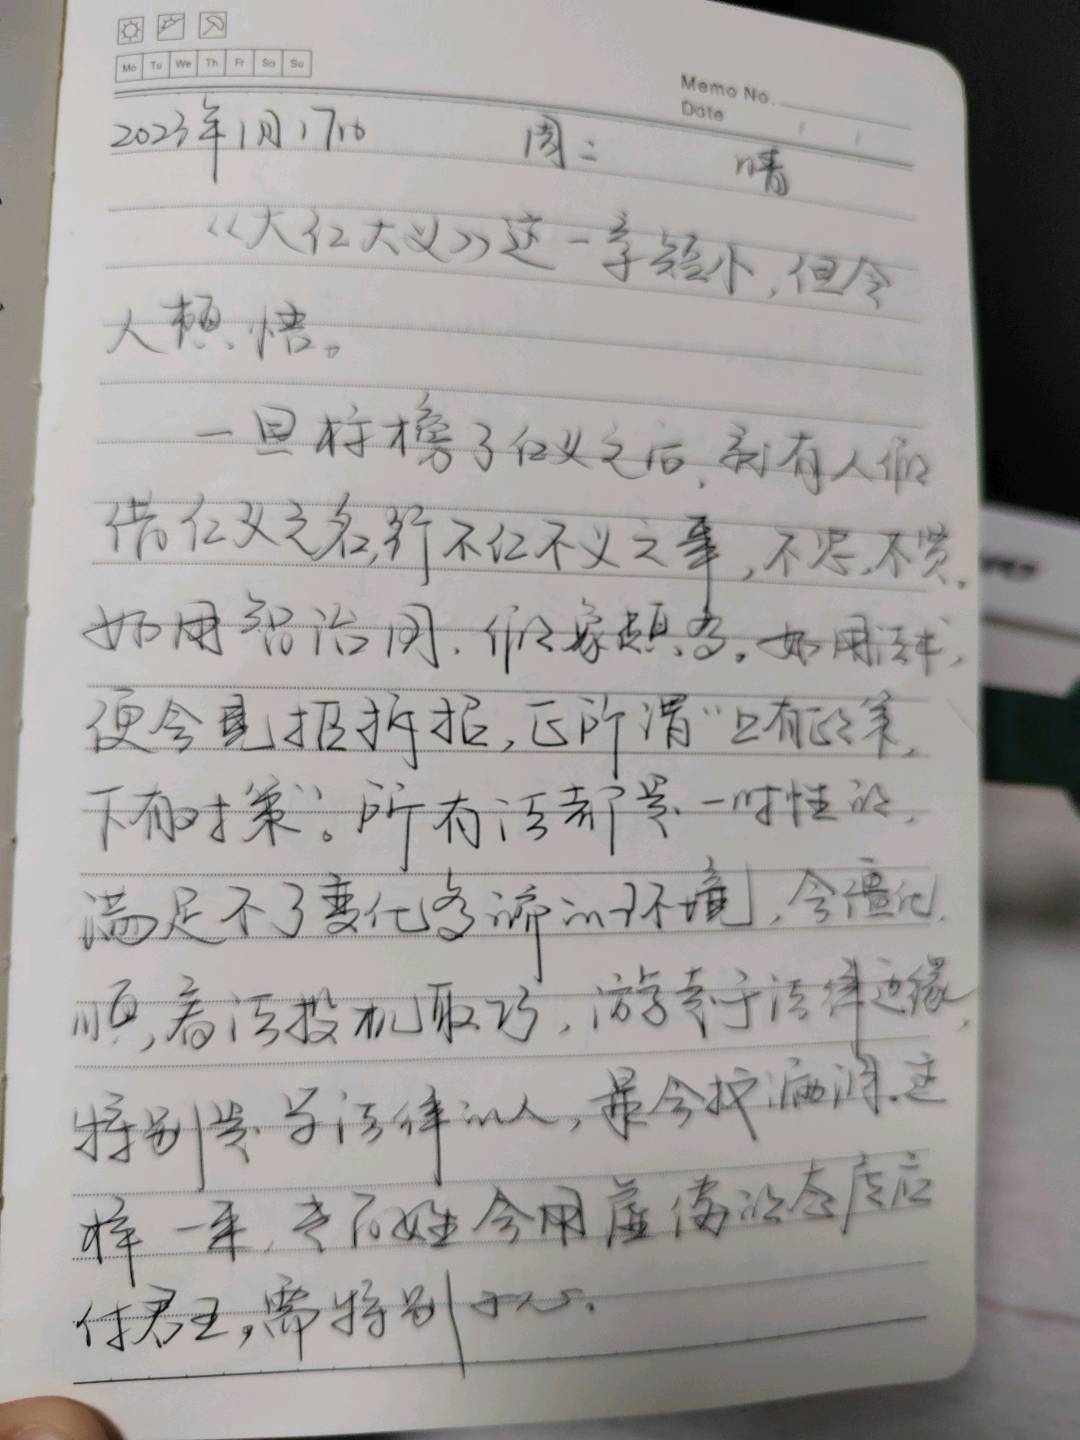 Mo Tu We Th Fr Sa Su
Memo No.
Date / /
2023年1月17日 周二 晴
《大仁大义》这一章短小,但令
人顿悟。
一旦标榜了仁义之后,就有人们
借仁义之名,行不仁不义之事,不忠,不贤。
如用智治国,们家颇多。如用法术,
便会见招拆招,正所谓“上有政策,
下有对策”。所有法都是一时性的,
满足不了变化多端的环境,会僵化,
顺着法投机取巧,游离于法律边缘,
特别是学法律的人,最会找漏洞。这
样一来,老百姓会用虚伪的态度应
付君王,需特别小心。